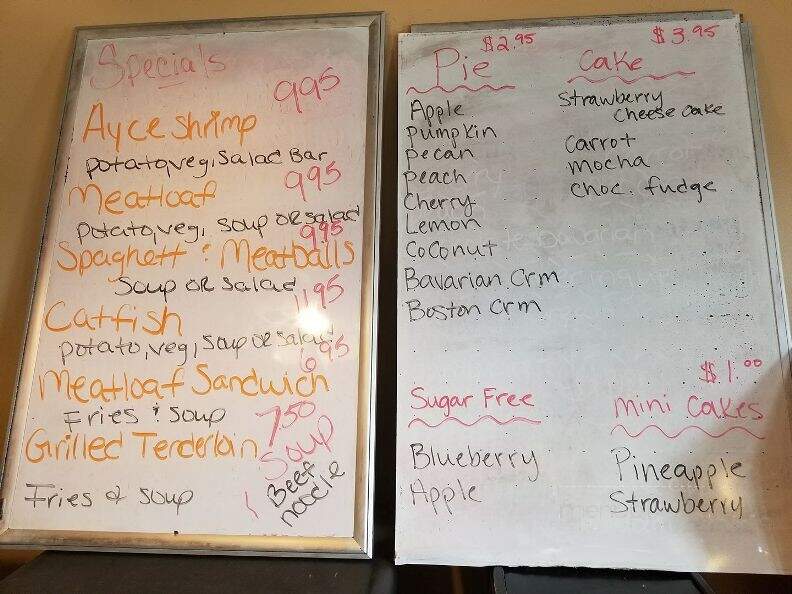 Specials
9.95
Ayce Shrimp
potato, veg, Salad Bar
9.95
Meatloaf
potato, veg, soup or salad
9.95
Spaghetti & Meatballs
Soup or Salad
11.95
Catfish
potato, veg, soup or salad
6.95
Meatloaf Sandwich
Fries & Soup
7.50
Grilled Tenderloin
Fries & Soup
Soup
Beef
noodle
$2.95
Pie
Apple
pumpkin
pecan
peach
Cherry
Lemon
Coconut
Bavarian Crm
Boston Crm
$3.95
Cake
Strawberry
Cheese cake
Carrot
mocha
choc. fudge
Sugar Free
Blueberry
Apple
$1.00
mini Cakes
Pineapple
Strawberry